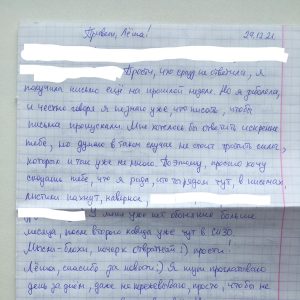 Привет, Лёша! 29.12.21
Прости, что сразу не ответила, я
получила письмо ещё на прошлой неделе. Но я заболела,
и честно говоря я не знаю уже, что писать, чтобы
письма пропускали. Мне хотелось бы ответить искренне
тебе, но думаю в таком случае не стоит тратить силы,
которых и так уже не много. Поэтому, просто хочу
сообщить тебе, что я рада, что ты рядом тут, в письмах,
пахнут, наверное
У меня уже нет обоняния больше
месяца, после второго ковида уже тут в СИЗО.
Мысли-блохи, почерк отвратный :) прости!
Лёшка, спасибо за новости :) Я ищу проглатываю
день за днём, даже не пережёвывая, просто, чтобы не